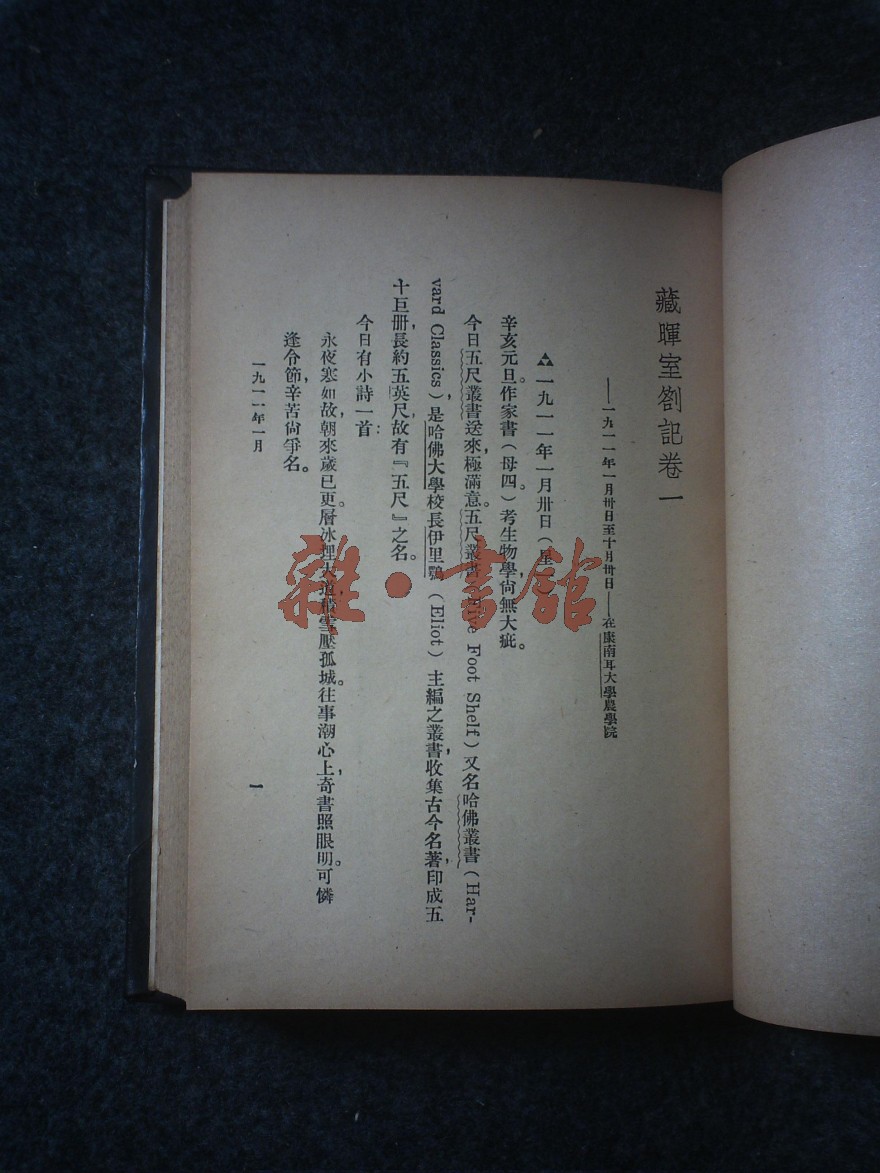 藏暉室劄記卷一
——一九一一年一月卅日至十月卅日——在康南耳大學農學院
一九一一年一月卅日(星一)
辛亥元旦。作家書(母四)考生物學,尙無大疵。
今日五尺叢書送來,極滿意。五尺叢書(Five Foot Shelf)又名哈佛叢書(Har-
vard Classics),是哈佛大學校長伊里鶚(Eliot)主編之叢書,收集古今名著,印成五
十巨册,長約五英尺,故有『五尺』之名。
今日有小詩一首:
永夜寒如故,朝來歲已更。層冰埋大道,積雪壓孤城。往事潮心上,奇書照眼明。可憐
逢令節,辛苦尙爭名。
一九一一年一月
一
雜·書館